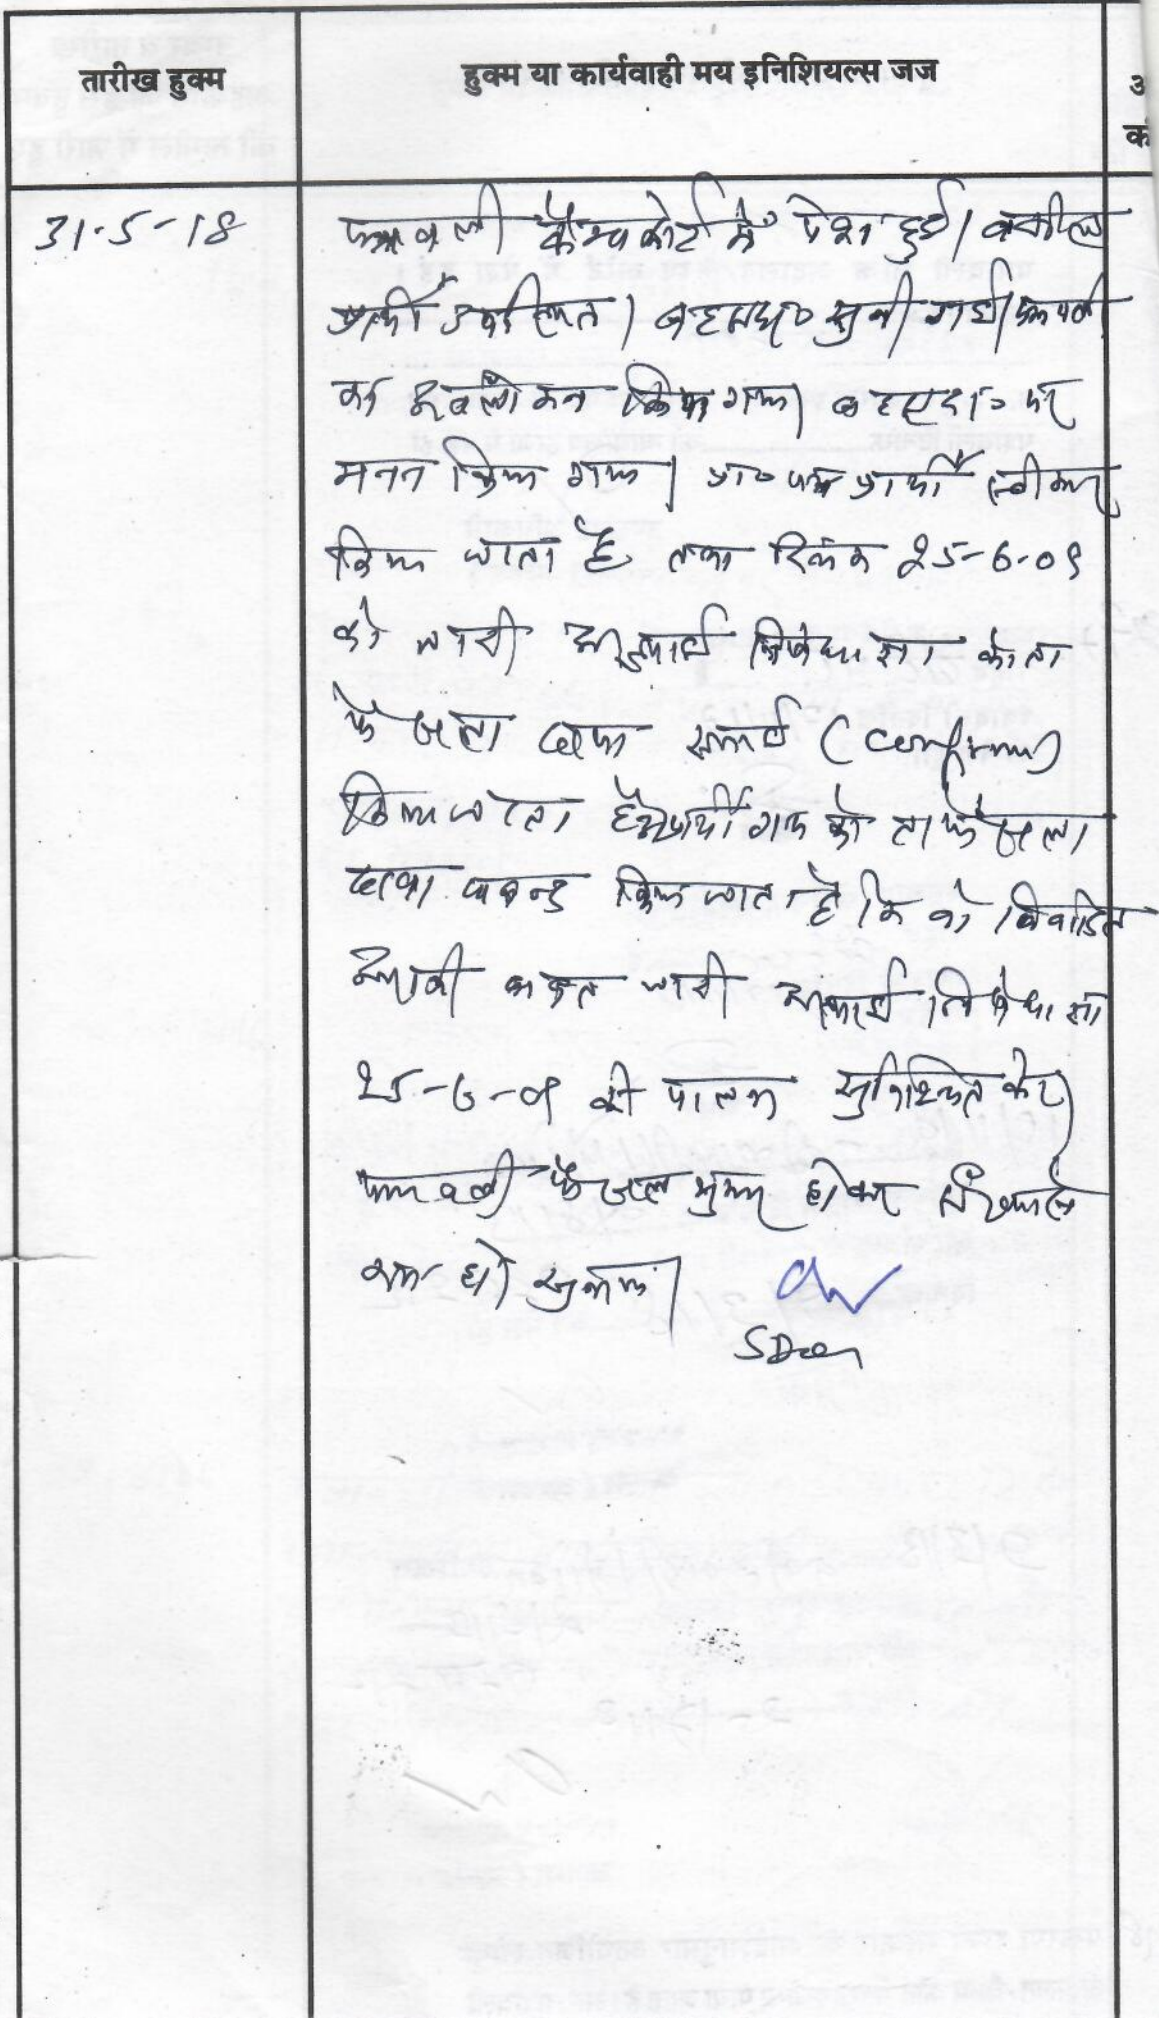 तारीख हुक्म
हुक्म या कार्यवाही मय इनिशियल्स जज
31-5-18
पत्रावली कैम्प कोर्ट में पेश हुई। वकील
प्रार्थी उपस्थित। बहस प्रा० सुनी गयी। पत्रावली
का अवलोकन किया गया। बहस प्रा० पर
मनन किया गया। प्रा० पत्र प्रार्थी स्वीकार
किया जाता है तथा दिनांक 25-6-09
को जारी अस्थाई निषेधाज्ञा को ता
फैसला दावा स्थाई (confirm)
किया जाता है। अप्रार्थी गण को ता फैसला
दावा पाबन्द किया जाता है कि वो विवादित
आराजी बाबत जारी अस्थाई निषेधाज्ञा
25-6-09 की पालना सुनिश्चित करे।
पत्रावली फैसल शुमार होकर
हो सुनाया।